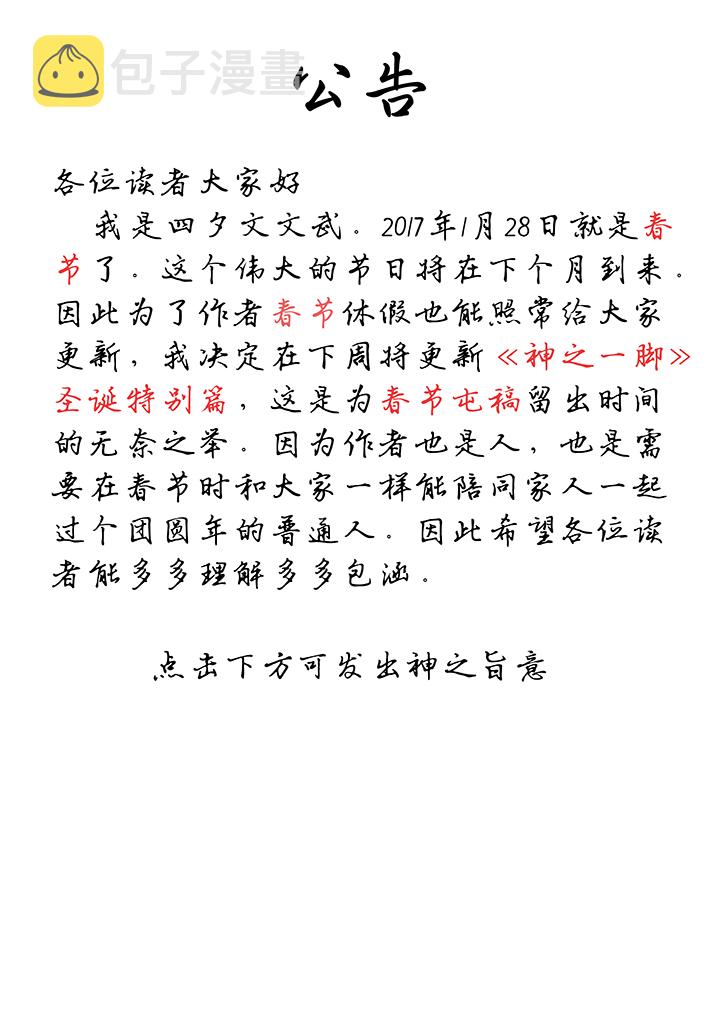 包子漫畫
公告
各位读者大家好
我是四夕文文武。2017年1月28日就是春
节了。这个伟大的节日将在下个月到来。
因此为了作者春节休假也能照常给大家
更新，我决定在下周将更新《神之一脚》
圣诞特别篇，这是为春节屯稿留出时间
的无奈之举。因为作者也是人，也是需
要在春节时和大家一样能陪同家人一起
过个团圆年的普通人。因此希望各位读
者能多多理解多多包涵。
点击下方可发出神之旨意